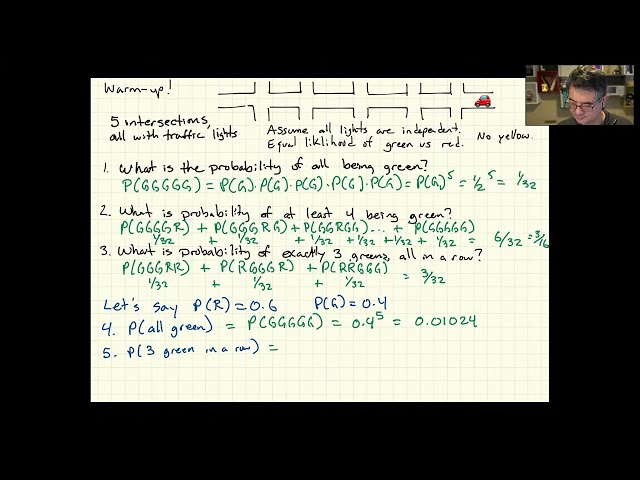 Warm-up!
5 intersections,
all with traffic lights
Assume all lights are independent.
Equal liklihood of green vs red.
No yellow.
1. What is the probability of all being green?
P(GGGGG) = P(G)·P(G)·P(G)·P(G)·P(G) = P(G)^5 = 1/2^5 = 1/32
2. What is probability of at least 4 being green?
P(GGGGR) + P(GGGRG) + P(GGRGG)... + P(GGGGG)
1/32 + 1/32 + 1/32 + 1/32 + 1/32 + 1/32 = 6/32 = 3/16
3. What is probability of exactly 3 greens, all in a row?
P(GGGRR) + P(RGGGR) + P(RRGGG)
1/32 + 1/32 + 1/32 = 3/32
Let's say P(R) = 0.6 P(G) = 0.4
4. P(all green) = P(GGGGG) = 0.4^5 = 0.01024
5. P(3 green in a row) =